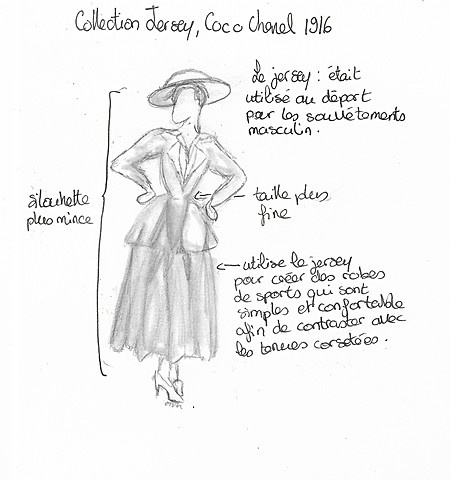 Collection Jersey, Coco Chanel 1916
Le jersey : était
utilisé au départ
par les souvêtements
masculin.
silouhette
plus mince
taille plus
fine
utilise le jersey
pour créer des robes
de sports qui sont
simples et confortable
afin de contraster avec
les tenues corsetées.